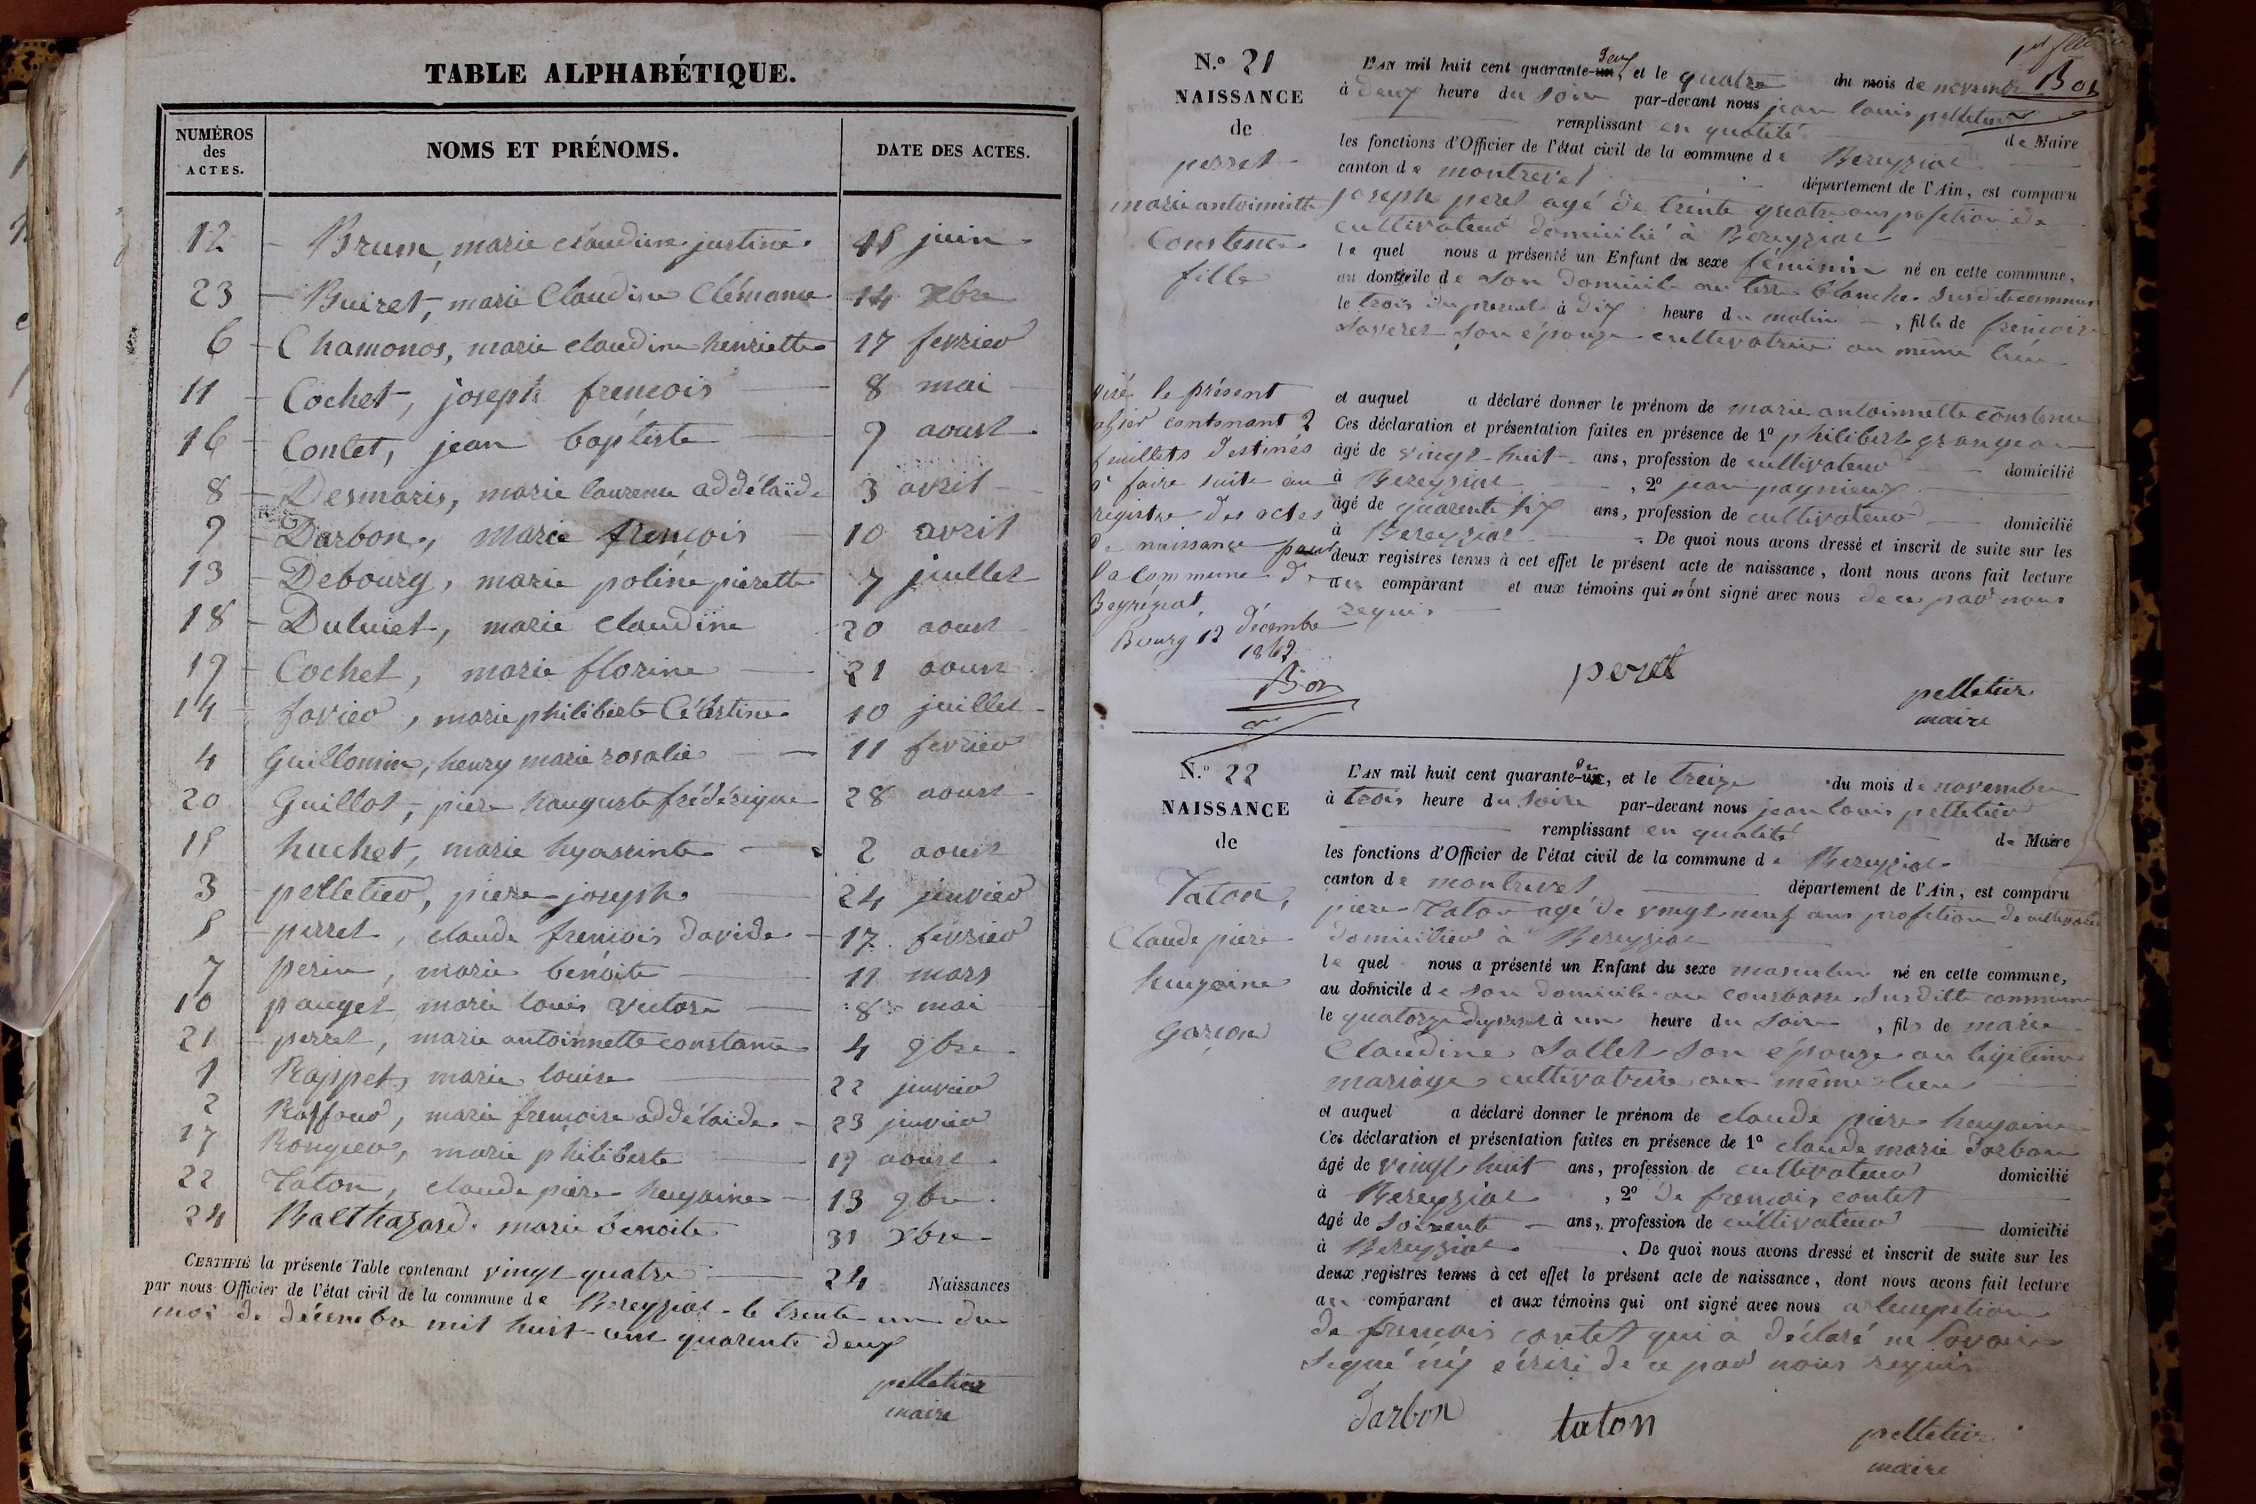 TABLE ALPHABÉTIQUE.
NUMÉROS
des
ACTES.
NOMS ET PRÉNOMS.
DATE DES ACTES.
12 Brum, marie claudine justine 15 juin
23 Buiret, marie Claudine Clémance 14 Xbre
6 Chamonos, marie claudine henriette 17 fevrier
11 Cochet, joseph frencois 8 mai
16 Contet, jean baptiste 9 aoust
8 Desmaris, marie laurence addélaïde 3 avril
9 Darbon, marie françois 10 avril
13 Debourg, marie poline pierette 7 juillet
18 Duluiet, marie claudine 20 aoust
19 Cochet, marie florine 21 aoust
14 favier, marie philiberte Célestine 10 juillet
4 Guillomin, henry marie rosalie 11 fevrier
20 Guillot, piere hauguste frédérique 28 aoust
15 huchet, marie hyassinte 2 aoust
3 pelletier, piere joseph 24 jenvier
5 perret, claude freniois davide 17 fevrier
7 perin, marie benoite 11 mars
10 pauget marie louis victore 8 mai
21 perret, marie antoinnette constance 4 9bre
1 Rappet, marie louise 22 jenvier
2 Raffour, marie frencoise addélaïde 23 jenvier
17 Rongier, marie philiberte 19 aoust
22 Taton, claude piere heugaine 13 9bre
24 Balthazard. marie benoite 31 Xbre
CERTIFIÉ la présente Table contenant vingt quatre 24 Naissances
par nous Officier de l'état civil de la commune de Bereyziat le trente un du
mois de décembre mil huit cent quarente deux
pelletier
maire
N.º 21
NAISSANCE
de
perret
marie antoinnette
Constence
fille
1er feuillet
Bon
L'AN mil huit cent quarante-un deux, et le quatre du mois de novembre
à deux heure du soir par-devant nous jean louis pelletier
remplissant en qualité de Maire
les fonctions d'Officier de l'état civil de la commune de Bereyziat
canton de montrevel département de l'Ain, est comparu
joseph peret agé de trente quatre ans profetion de
cultivateur domicilié à Bereyziat
le quel nous a présenté un Enfant du sexe féminin né en cette commune,
au domicile de son domicile au terre blanche susdite commune
le trois du presend à dix heure du matin, fille de frencoise
Saveret son épouze cultivatrice au même lieu
et auquel a déclaré donner le prénom de marie antoinnette constence
Ces déclaration et présentation faites en présence de 1º philibert grangeon
âgé de vingt-huit ans, profession de cultivateur domicilié
à Bereyziat, 2º jean pagnieux
âgé de quarente six ans, profession de cultivateur domicilié
à Bereyziat. De quoi nous avons dressé et inscrit de suite sur les
deux registres tenus à cet effet le présent acte de naissance, dont nous avons fait lecture
au comparant et aux témoins qui n'ont signé avec nous de ce par nous
requis
visé le présent
cahier contenant 2
feuillets destinés
à faire suite au
registre des actes
de naissance pour
la commune de
Beyréziat,
Bourg 12 décembre
1842
Bon
peret
pelletier
maire
N.º 22
NAISSANCE
de
Taton,
Claude piere
heugaine
garçon
L'AN mil huit cent quarante-deux, et le treize du mois de novembre
à trois heure du soire par-devant nous jean louis pelletier
remplissant en qualité de Maire
les fonctions d'Officier de l'état civil de la commune de Bereyziat
canton de montrevel département de l'Ain, est comparu
piere Taton agé de vingt neuf ans profetion de cultivateur
domicilier à Bereyziat
le quel nous a présenté un Enfant du sexe masculin né en cette commune,
au domicile de son domicile au courbasse susditte commune
le quatorze du present à une heure du soire, fils de marie
Claudine Sallet son épouze au légitime
mariage cultivatrice au même lieu
et auquel a déclaré donner le prénom de claude piere heugaine
Ces déclaration et présentation faites en présence de 1º claude marie darbon
âgé de vingt huit ans, profession de cultivateur domicilié
à Bereyziat, 2º de frencois contet
âgé de soixente ans, profession de cultivateur domicilié
à Bereyziat. De quoi nous avons dressé et inscrit de suite sur les
deux registres tenus à cet effet le présent acte de naissance, dont nous avons fait lecture
au comparant et aux témoins qui ont signé avec nous a lexepetion
de frencois contet qui à déclaré ne savoir
signé niy écrire de ce par nous requis
darbon
taton
pelletier
maire